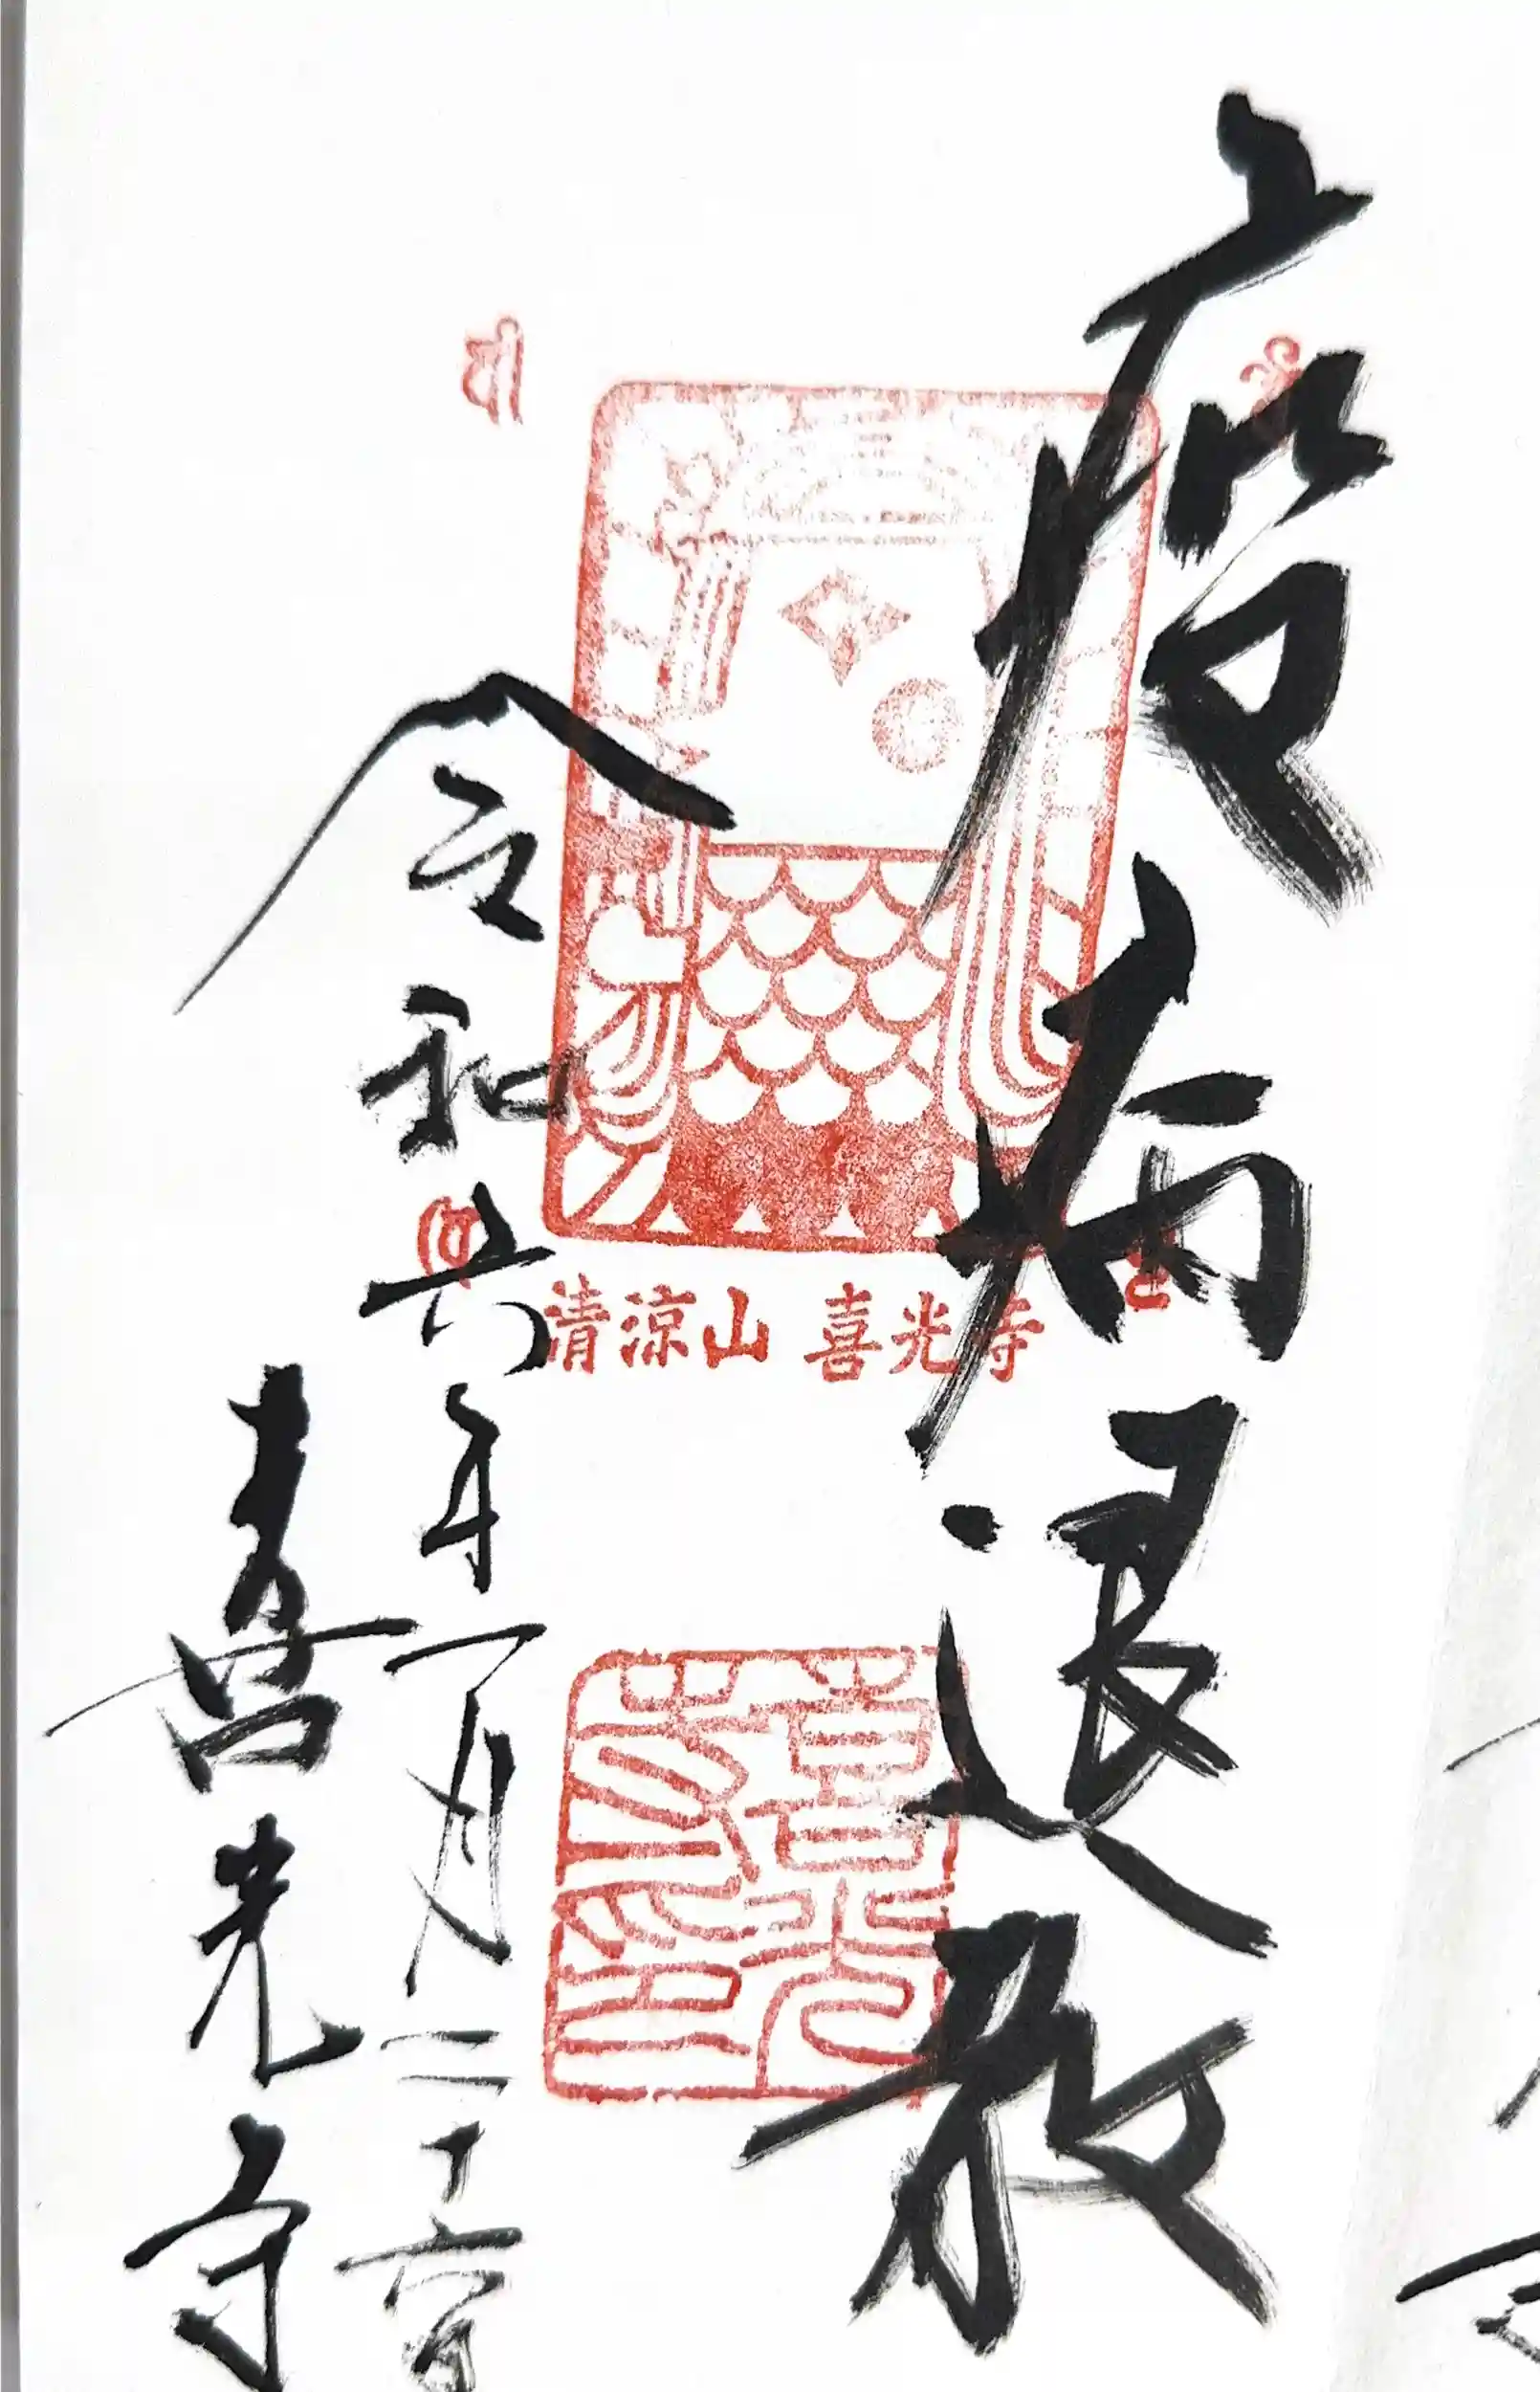 疫病退散
清涼山 喜光寺
喜光寺印
令和六年一月二十六日
喜光寺